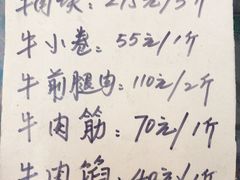 牛肉块：215元/5斤
牛小卷：55元/1斤
牛前腿肉：110元/2斤
牛肉筋：70元/1斤
牛肉馅：40元/1斤